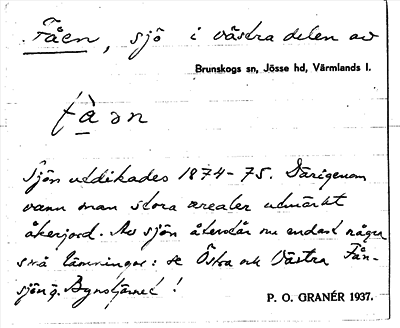 Fåen, sjö i västra delen av
Brunskogs sn, Jösse hd, Värmlands l.
fàən
Sjön utdikades 1874-75. Därigenom
vann man stora arealer utmärkt
åkerjord. Av sjön återstår nu endast några
små lämningar: se Östra och Västra Fån-
sjön o. Byns tjärnet!
P. O. GRANÉR 1937.